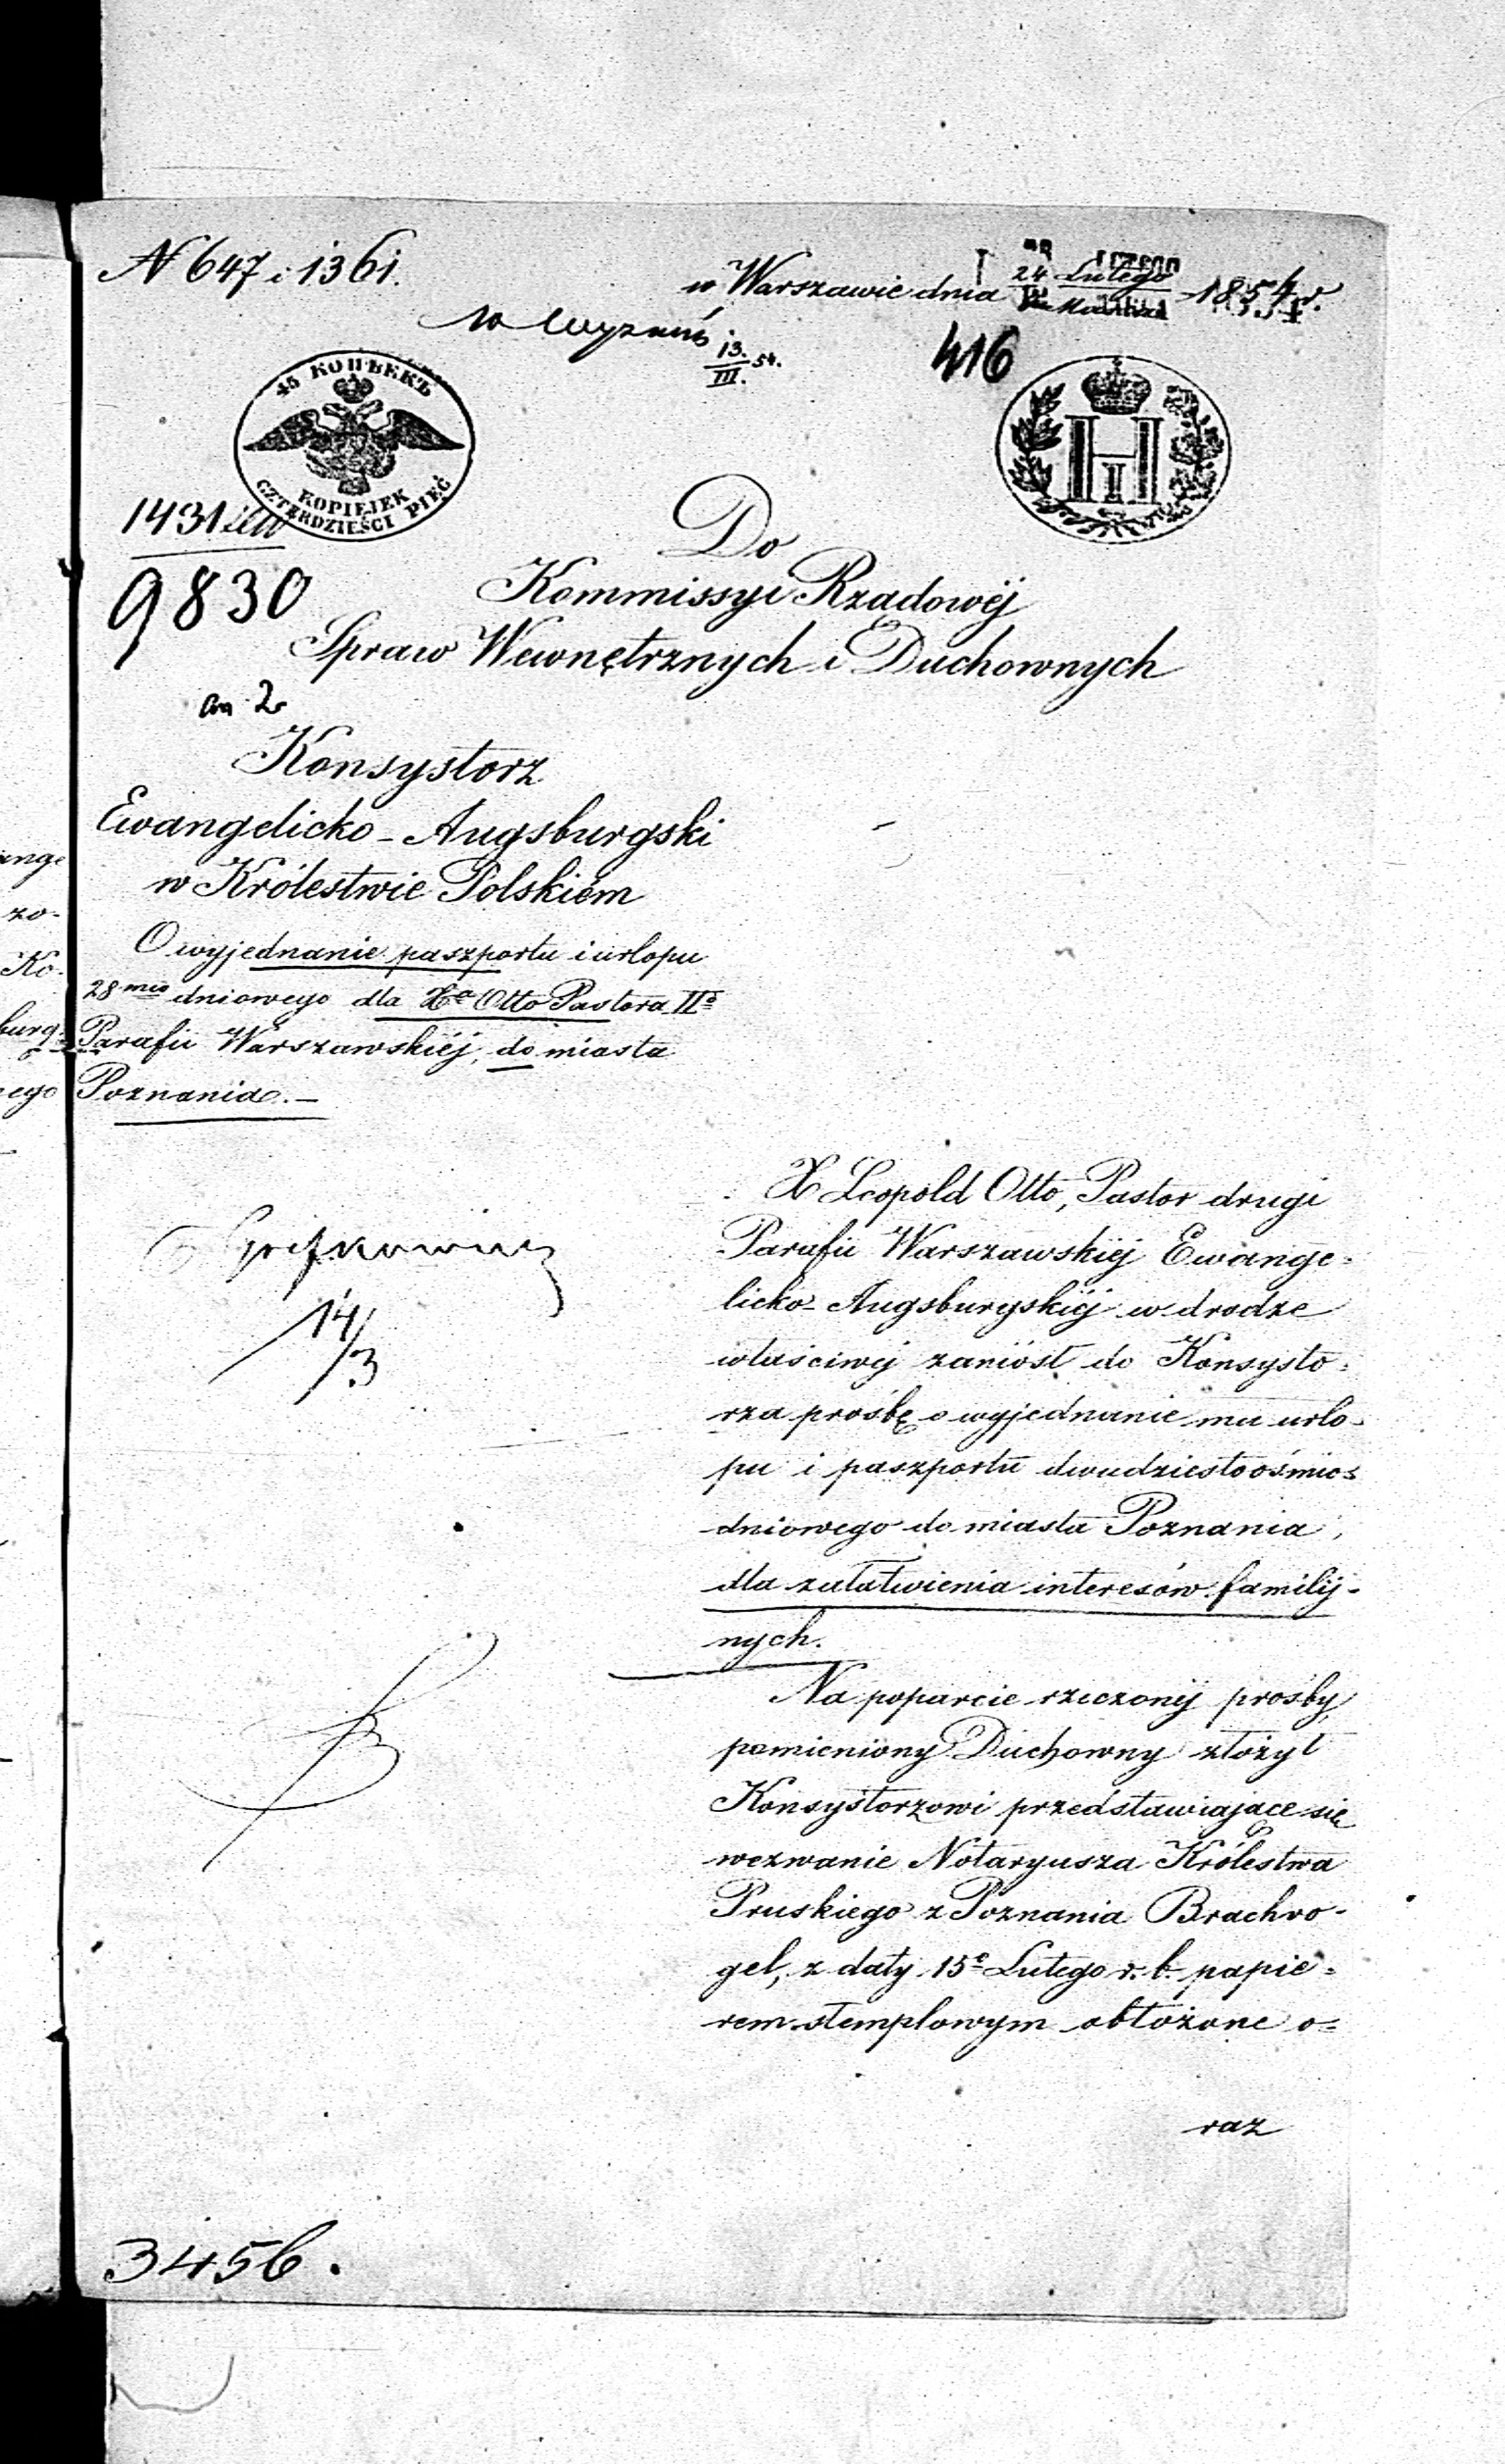 N 647 i 1361.
w Warszawie dnia 24 Lutego 1854 r.
w Wyznań 13./III. 54.
416
45 КОПѢЕКЪ
KOPIEJEK
CZTERDZIEŚCI PIĘĆ
H I
1431
9830
Do
Kommissyi Rządowéj
Spraw Wewnętrznych i Duchownych
an 2
Konsystorz
Ewangelicko-Augsburgski
w Królestwie Polskiém
O wyjednanie paszportu i urlopu
28mio dniowego dla Xa Otto Pastora IIo
Parafii Warszawskiéj, do miasta
Poznania.—
X Leopold Otto, Pastor drugi
Parafii Warszawskiéj Ewange=
licko-Augsburgskiéj w drodze
właściwéj zaniósł do Konsysto=
rza prośbę o wyjednanie mu urlo-
pu i paszportu dwudziestoośmio=
dniowego do miasta Poznania,
dla załatwienia interesów familij-
nych.
Na poparcie rzeczonéj prośby,
pomieniony Duchowny złożył
Konsystorzowi przedstawiające się
wezwanie Notaryusza Królestwa
Pruskiego z Poznania Brachvo-
gel, z daty 15e Lutego r. b. papie=
rem stemplowym obłożone o=
raz
14/3
3456.
ange
zo-
Ko-
burg-
cego